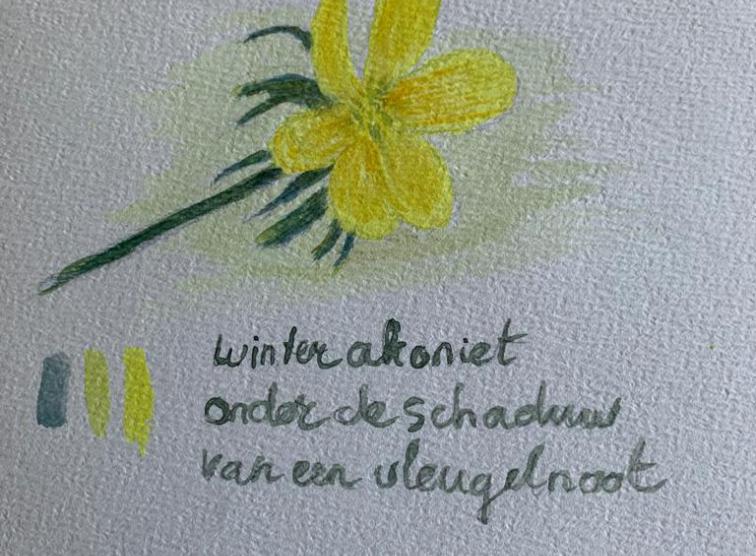 winterakoniet
onder de schaduw
van een vleugelnoot